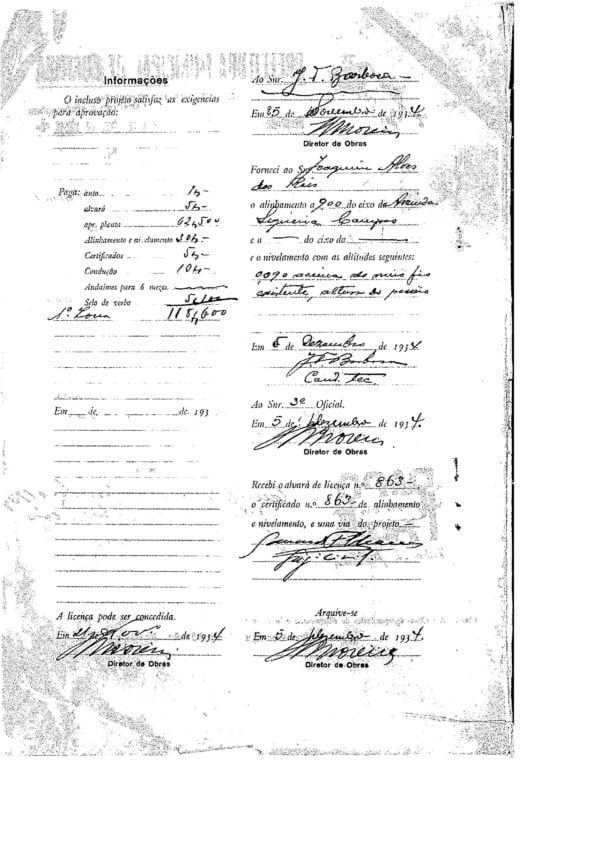 Informações
O incluso projeto satisfaz as exigencias
para aprovação:
Paga: 1$-
alvará 5$-
apr. planta 62$500
Alinhamento e nivelamento
Certificados 5$-
Condução 10$-
Andaimes para 6 mezes
Selo de verba
1ª Zona 118$600
Em de de 193
A licença pode ser concedida.
Em de 1934
Diretor de Obras
Ao Snr. J. T. Barbosa
Em 25 de Novembro de 1934
Diretor de Obras
Forneci ao Snr Joaquim Alves
dos Reis
o alinhamento a 900 do eixo da Avenida
Siqueira Campos
e a do eixo da
e o nivelamento com as altitudes seguintes:
0,090 acima do meio fio
existente, altura do passeio
Em 5 de Dezembro de 1934
J. T. Barbosa
Cond. Tec.
Ao Snr. 3º Oficial.
Em 5 de Dezembro de 1934.
Moreira
Diretor de Obras
Recebi o alvará de licença n.º 863-
o certificado n.º 863- de alinhamento
e nivelamento, e uma via do projeto
Arquive-se
Em 5 de Dezembro de 1934.
Moreira
Diretor de Obras